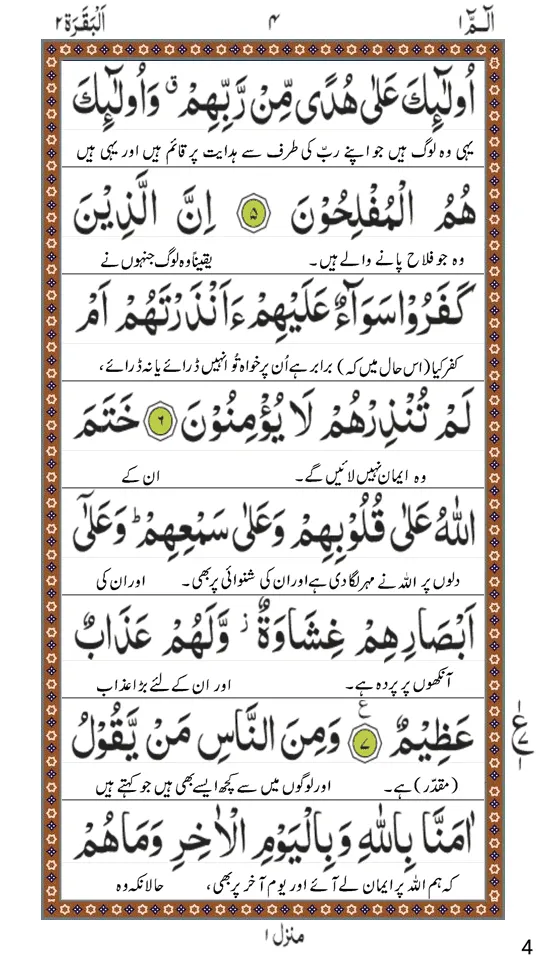 الٓمّٓ ١ ۴ اَلْبَقَرَة ٢
اُولٰٓئِكَ عَلٰى هُدًى مِّنْ رَّبِّهِمْ ق وَ اُولٰٓئِكَ
یہی وہ لوگ ہیں جو اپنے ربّ کی طرف سے ہدایت پر قائم ہیں اور یہی ہیں
هُمُ الْمُفْلِحُوْنَ ۵ اِنَّ الَّذِيْنَ
وہ جو فلاح پانے والے ہیں۔ یقیناً وہ لوگ جنہوں نے
كَفَرُوْا سَوَآءٌ عَلَيْهِمْ ءَاَنْذَرْتَهُمْ اَمْ
کفر کیا (اس حال میں کہ) برابر ہے اُن پر خواہ تُو انہیں ڈرائے یا نہ ڈرائے،
لَمْ تُنْذِرْهُمْ لَا يُؤْمِنُوْنَ ۶ خَتَمَ
وہ ایمان نہیں لائیں گے۔ ان کے
اللّٰهُ عَلٰى قُلُوْبِهِمْ وَعَلٰى سَمْعِهِمْ ؕ وَعَلٰٓى
دلوں پر اللہ نے مہر لگا دی ہے اور ان کی شنوائی پر بھی۔ اور ان کی
اَبْصَارِهِمْ غِشَاوَةٌ ز وَّلَهُمْ عَذَابٌ
آنکھوں پر پردہ ہے۔ اور ان کے لئے بڑا عذاب
عَظِيْمٌ ۷ ع وَمِنَ النَّاسِ مَنْ يَّقُوْلُ
١ ع ۷ ١
(مقدّر) ہے۔ اور لوگوں میں سے کچھ ایسے بھی ہیں جو کہتے ہیں
اٰمَنَّا بِاللّٰهِ وَبِالْيَوْمِ الْاٰخِرِ وَمَا هُمْ
کہ ہم اللہ پر ایمان لے آئے اور یوم آخر پر بھی، حالانکہ وہ
منزل ١
4